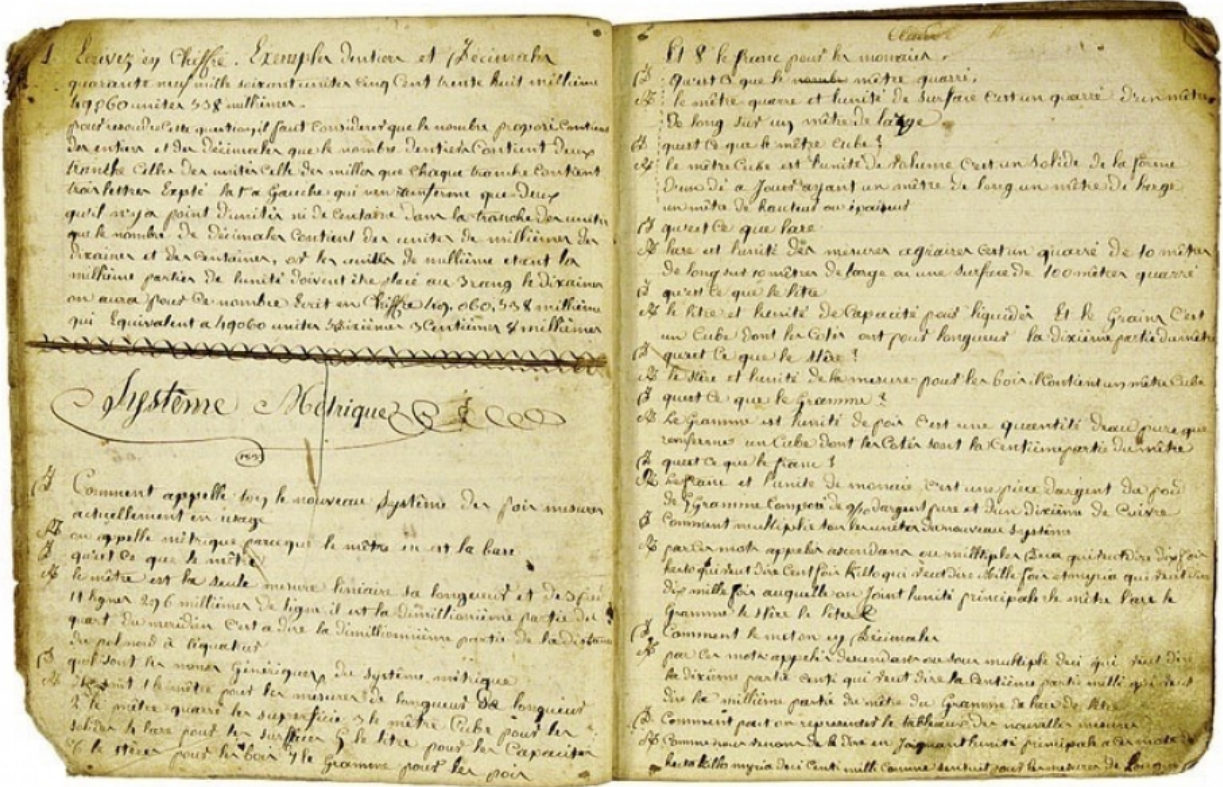 1. Ecrivez en Chiffre. Exemples dentiers et Décimales
quarante neuf mille soixant unites cinq Cent trente huit millieme
49,060 unites 538 milliemes.
pour resoudre cette question, il faut considerer que le nombre proposé contient
des entiers et des décimales que le nombre dentiers Contient deux
tranche Celles des unites celle des milles que chaque tranche contient
trois lettres Expté la 1a Gauche qui nen renferme que deux
quil n'y a point dunités ni de Centaine dans la tranche des unites
que le nombre de décimales Contient des unites de millièmes des
dixaines et des Centaines, or les unites de millième etant la
millième parties de lunité doivent être placé au 3 rang le dixaine
on aura pour Ce nombre Ecrit en Chiffre 49,060,538 millième
qui Equivalent a 49060 unites 5 dixièmes 3 Centièmes 8 millièmes
Système Métrique
D Comment appelle ton le nouveau Système des poix mesures
actuellement en usage
R on appelle métrique parceque le mètre en est la base
D quest Ce que le mètre
R le mètre est la seule mesure liniaire sa longueur et de 3 pieds
11 lignes 296 millièmes de ligne il est la dimillionième partie du
quart du meridien Cest a dire la dimillionnième partie de la distance
du pol nord à léquateur
D quels sont les noms Génériques du système métrique
R Ils sont 1 le mètre pour les mesures de longueurs de longueur
2 le mètre quarré les superficie 3 le mètre Cube pour les
solides 4 lare pour les surfaces 5 le litre pour les Capacites
6 le stère pour les bois 7 le Gramme pour les poix
Et 8 le franc pour les monnaies.
D quest Ce que le mètre quarré.
R le mètre quarré et lunité de surface Cest un quarré dun mètre
de long sur un mètre de large
D quest Ce que le mètre Cube?
R le mètre Cube est lunité de volume Cest un Solide de la forme
dun dé a Jouer ayant un mètre de long un mètre de large
un mètre de hauteur ou épaiseur
D quest Ce que lare
R lare est lunité des mesures agraires Cest un quarré de 10 mètres
de long sur 10 mètres de large ou une surface de 100 mètres quarré
D quest Ce que le litre
R le litre et lunité de Capacité pour liquides Et le Grains C'est
un Cube dont les Cotés ont pour longueur la dixième partie du mètre
D quest Ce que le Stère?
R le stère et lunité de la mesure pour les bois il Contient un mètre Cube
D quest Ce que le Gramme?
R Le Gramme est lunité de poix Cest une quantité deau pure que
renferme un Cube dont les Cotés sont la Centieme partie du mètre
D quest Ce que le franc?
R Le franc et l'unité de monnaie C'est une pièce dargent du poid
de 5 Gramme Composé de 9/10 dargent pure et dun dixième de Cuivre
D Comment multiplie ton les unités du nouveau système
R par Ces mots appelés ascendans ou multiples Deca qui veut dire dix fois
hecto qui veut dire Cent fois Killo qui veut dire Mille fois et myria qui veut dire
dix mille fois auquelle on Joint lunité principale le mètre lare le
Gramme le stère le litre
D Comment le met on en Décimales
R par Ces mots appelés descendans ou sous multiple deci qui veut dire
la dixième partie centi qui veut dire la Centième partie milli qui veut
dire la millième partie du mètre du Gramme de lare de litre
D Comment peut on representer le tableau des nouvelles mesures
R Comme nous venons de le dire en Joignant lunité principale a Ces mots
hecto Killo myria deci Centi milli Comme pour les mesures de Longueur